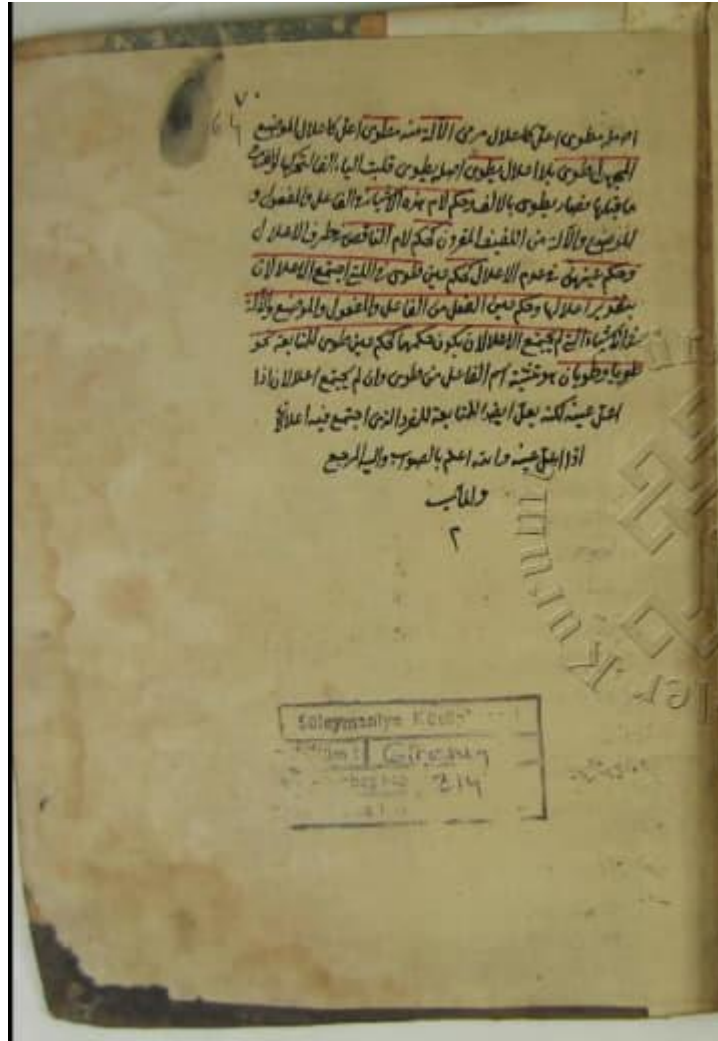 ٧٠
64
اصله مطوى اعل كاعلال مرمى الآلة منه مطوى اعل كاعلال الموضع
المجهول طوى بلا اعلال يطوى اصله يطوى قلبت الياء الفا لتحركها وانفتاح
ما قبلها فصار يطوى بالالف وحكم لام هذه الاشياء والفاعل والمفعول و
الموضع والآلة من اللفيف المقرون كحكم لام الناقص وطرف الاعلال
وحكم عينهن فى عدم الاعلال كحكم عين طوى فى التى اجتمع الاعلالان
بتقدير اعلالها وحكم عين الفعل من الفاعل والمفعول والموضع والآلة
فى الاشياء التى لم يجتمع الاعلالان يكون حكمها كحكم عين طوى للمتابعة نحو
طويا وطويان هو تثنية اسم الفاعل من طوى وان لم يجتمع اعلالان اذا
اعل عينه لكنه يعل ايضا للمتابعة للمفرد الذى اجتمع فيه اعلالان
اذا اعل عينه والله اعلم بالصواب واليه المرجع
والمآب
٢
Süleymaniye Kütüp
Giresun
214